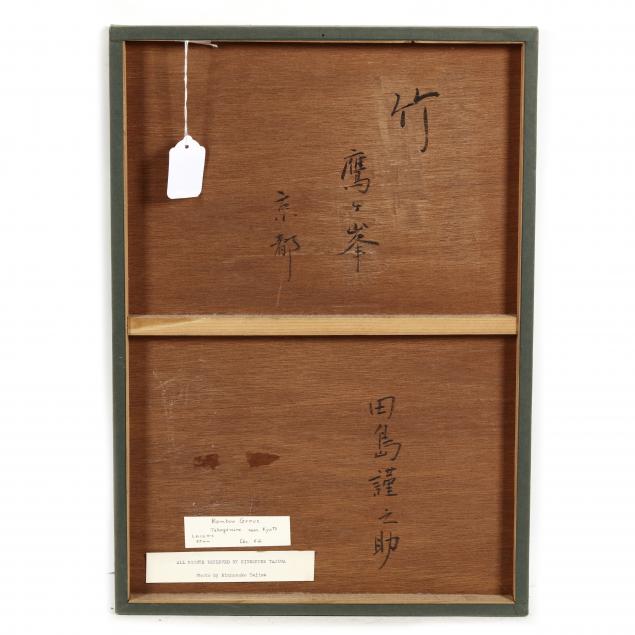 竹
鷹ヶ峯
京都
田島謹之助
Bamboo Grove
Takagamine near Kyoto
ALL RIGHTS RESERVED BY KINNOSUKE TAJIMA
Photo by Kinnosuke Tajima